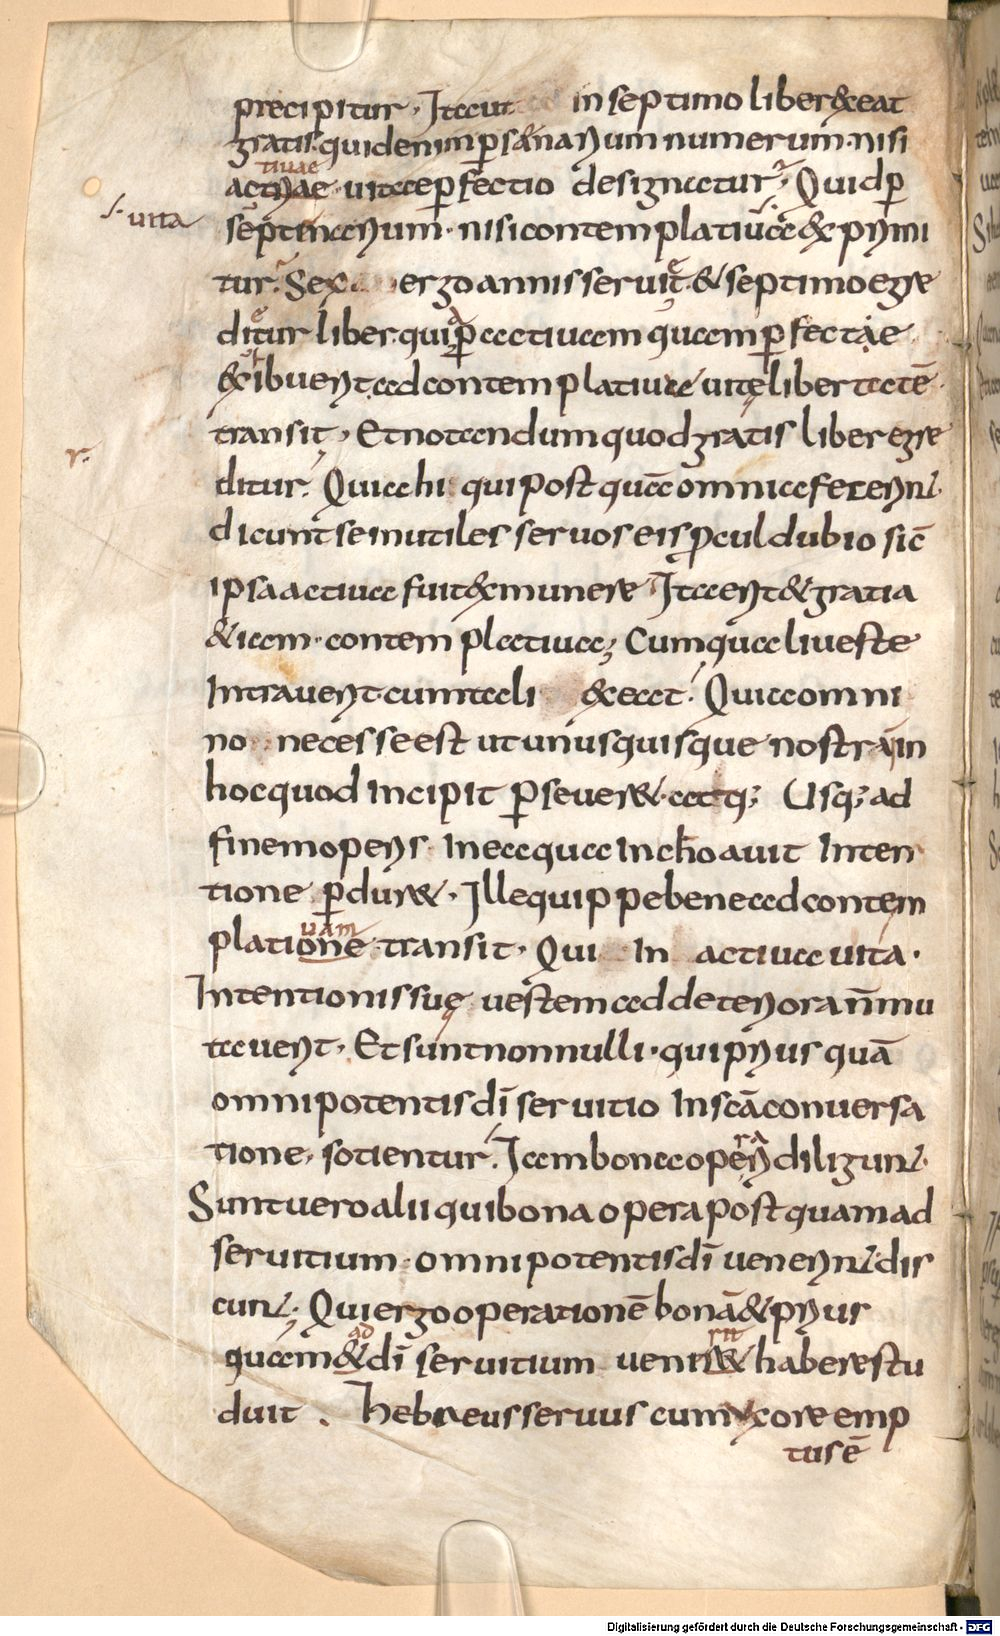 precipitur. Ita ut in septimo liber exeat
gratis. quid enim p senarium numerum. nisi
tiuae
actiuae uitae pfectio designatur? Quid p
uita
septenarium. nisi contemplatiua exprimi
tur? Sex ergo annis seruit. & septimo egre
ditur liber. qui p actiuam quam pfectae
exibuerit ad contemplatiuae uitę libertatē
transit, Et notandum quod gratis liber egre
r.
ditur. Quia hi qui postquā omnia fecerint
dicunt se inutiles seruos eis pcul dubio sic̄
ipsa actiua fuit ex munere Ita erit & gratia
& iam. contemplatiua; Cum quali ueste
intrauerit cum tali exeat. Quia omni
no necesse est ut unusquisque nostrā in
hoc quod incipit pseueret atq; Usq; ad
finem operis. in ea qua inchoauit inten
tione pduret. Ille quippe bene ad contem
uam
platione transit. Qui in actiua uita.
Intentionis suę uestem ad deteriora n̄ mu
tauerit. Et sunt nonnulli. qui prius quā
omnipotentis dī seruitio in scā conuersa
tione. sotientur. Iam bona operi diligunt.
ra
Sunt uero alii qui bona opera postquam ad
seruitium. omnipotentis dī uenerint dis
cunt. Qui ergo operationē bonā & prius
ad
rit
quam & dī seruitium ueniret habere stu
duit. hebreus seruus cum uxore emp
tus ē
Digitalisierung gefördert durch die Deutsche Forschungsgemeinschaft - DFG